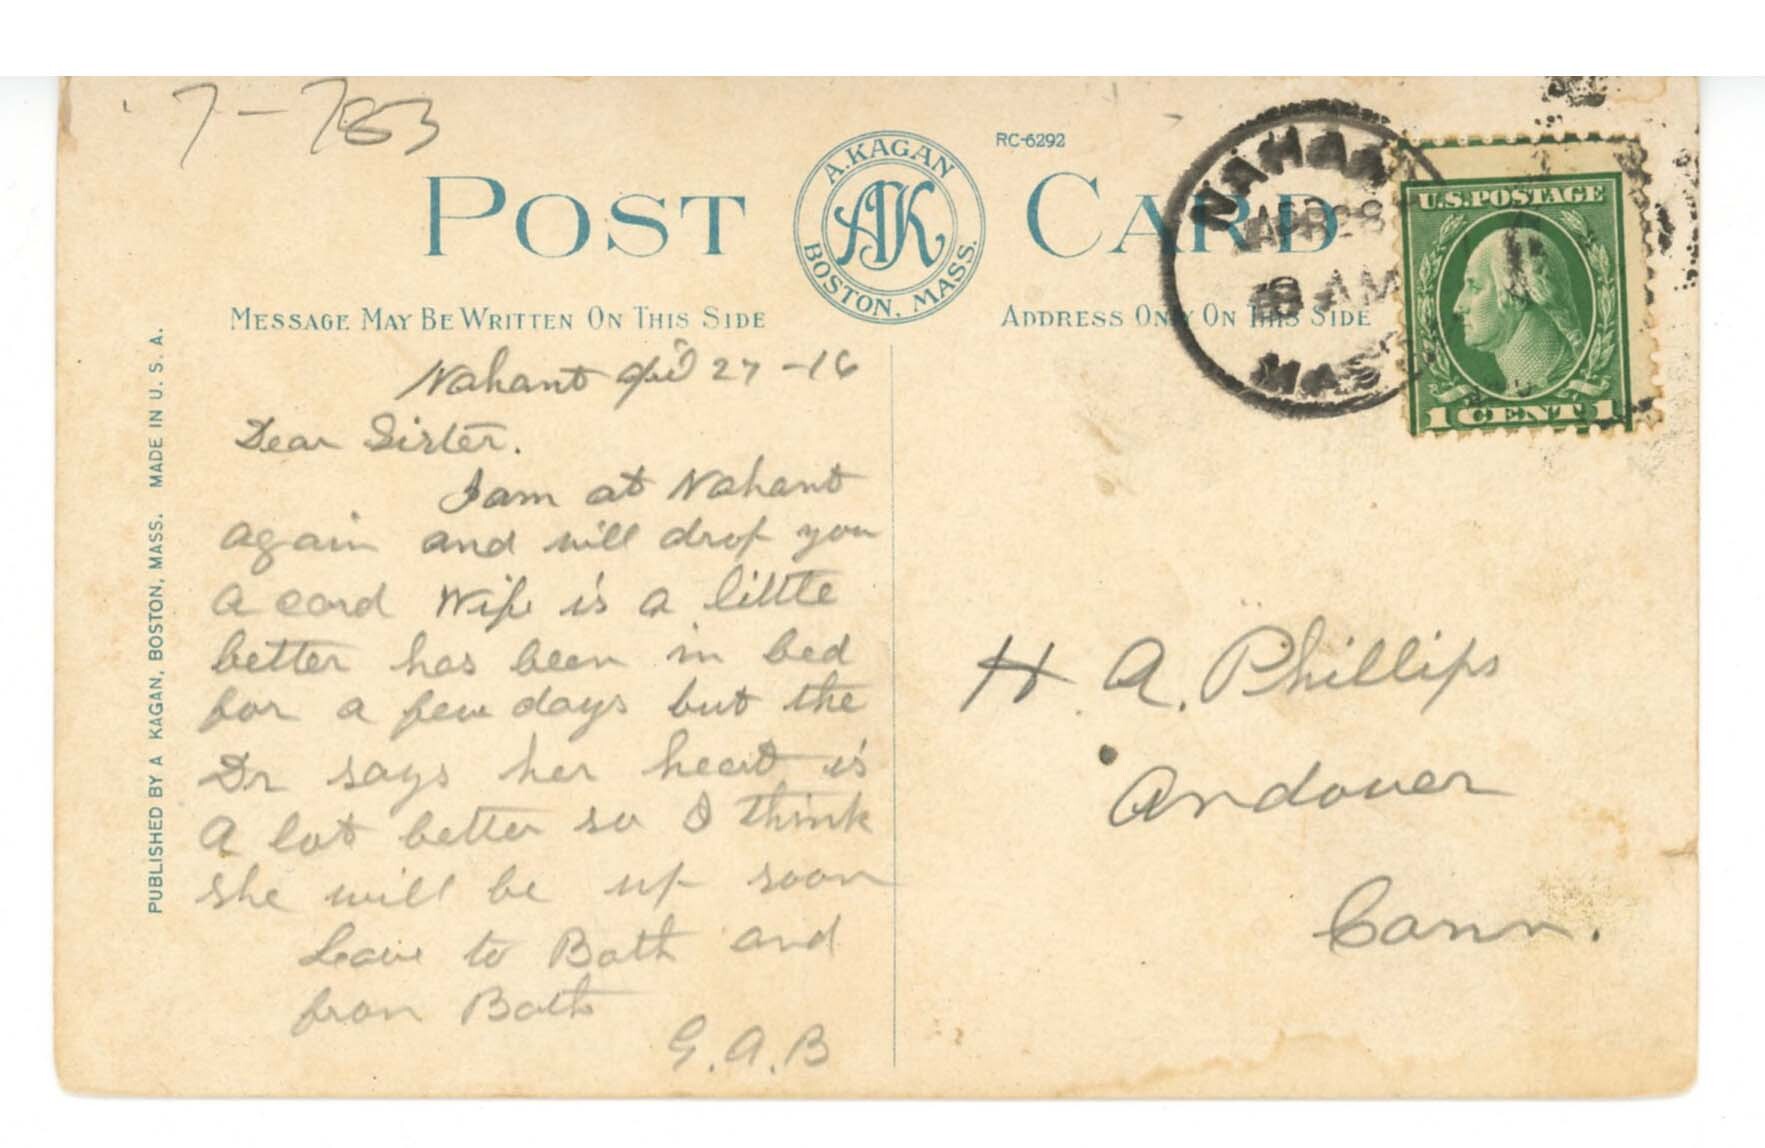 7-783
RC-6292
POST CARD
A. KAGAN
AK
BOSTON, MASS.
MESSAGE MAY BE WRITTEN ON THIS SIDE
ADDRESS ONLY ON THIS SIDE
NAHANT
APR 28
8 AM
MASS
U.S.POSTAGE
1 CENT 1
PUBLISHED BY A KAGAN, BOSTON, MASS. MADE IN U. S. A.
Nahant 27-16
Dear Sister.
I am at Nahant
again and will drop you
a card Wife is a little
better has been in bed
for a few days but the
Dr says her heart is
a lot better so I think
she will be up soon
to Both and
from Both
G. A. B
H. A. Phillips
Andover
Conn.